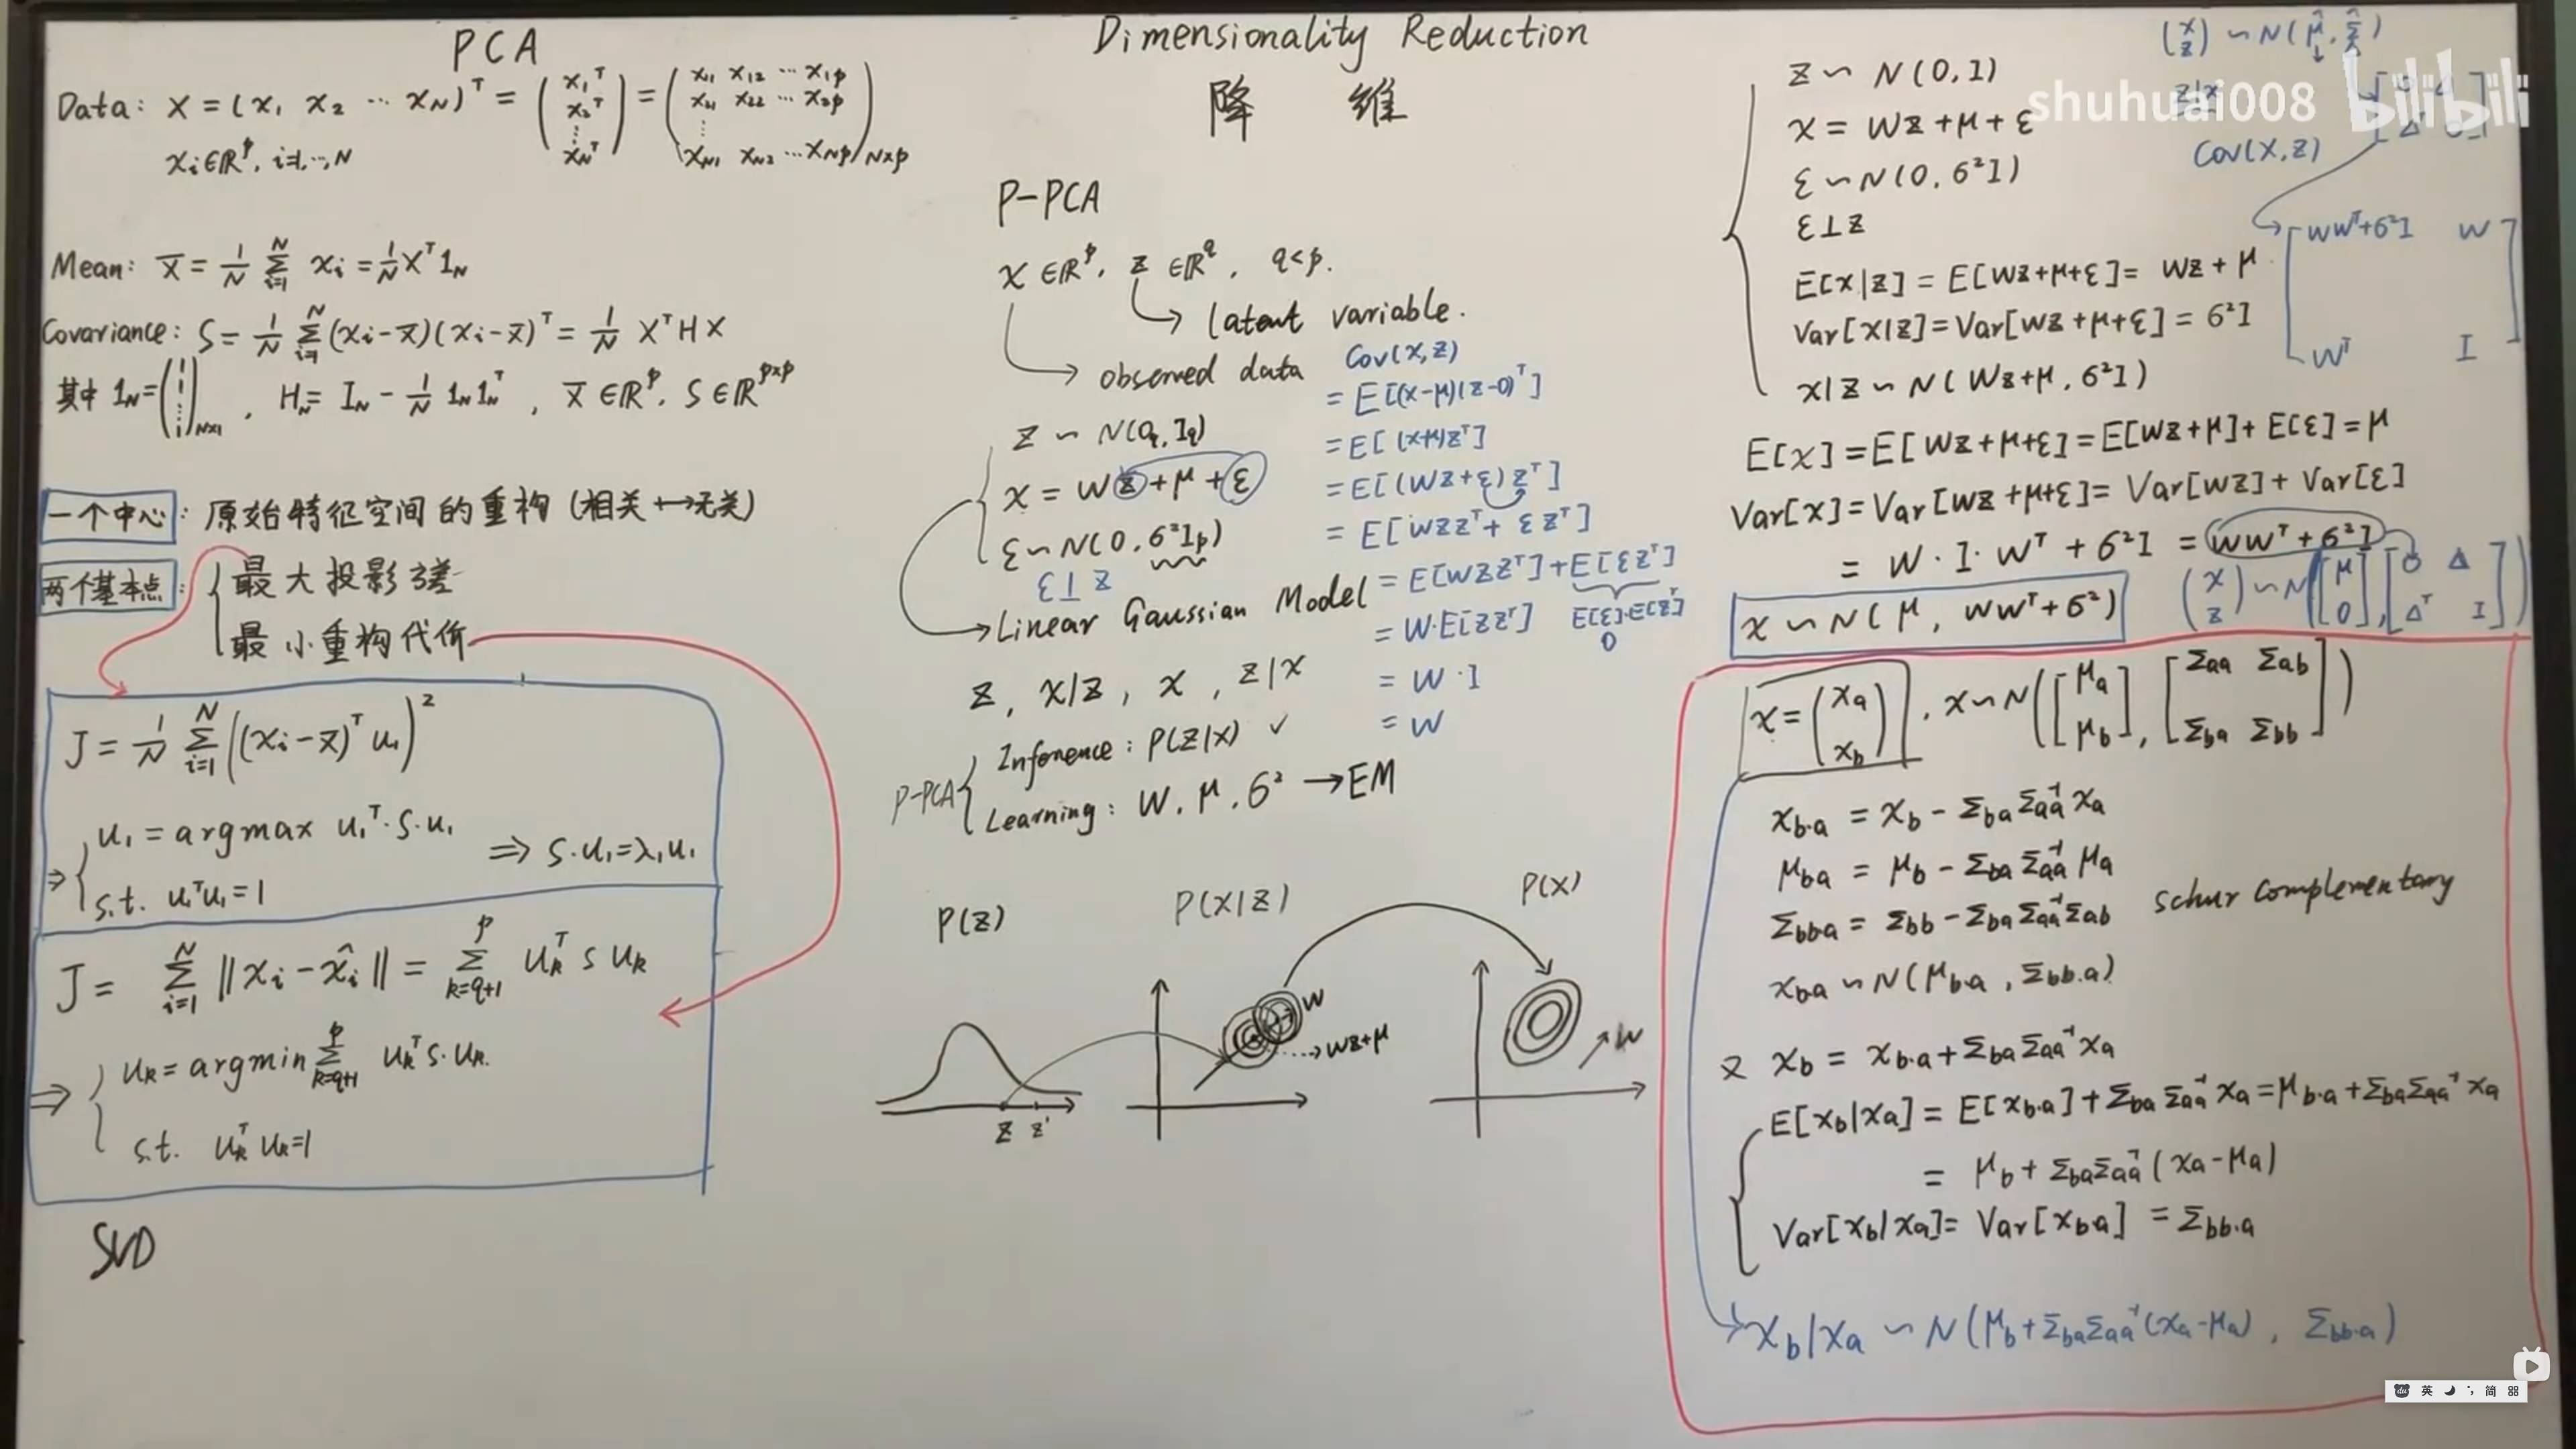 Dimensionality Reduction
降 维
PCA
Data: X = (x₁ x₂ ⋯ x_N)ᵀ = (x₁ᵀ x₂ᵀ ⋮ x_Nᵀ) = (x₁₁ x₁₂ ⋯ x₁p
x₂₁ x₂₂ ⋯ x₂p
⋮
x_N1 x_N2 ⋯ x_Np)_N×p
xᵢ∈ℝᵖ, i=1,⋯,N
Mean: x̄ = 1/N Σ_{i=1}^N xᵢ = 1/N Xᵀ1_N
Covariance: S = 1/N Σ_{i=1}^N (xᵢ-x̄)(xᵢ-x̄)ᵀ = 1/N XᵀHX
其中 1_N = (1 1 ⋮ 1)_N×1, H_N = I_N - 1/N 1_N 1_Nᵀ, x̄ ∈ℝᵖ, S∈ℝ^{p×p}
一个中心: 原始特征空间的重构 (相关↔无关)
两个基本点: { 最大投影方差
最小重构代价
J = 1/N Σ_{i=1}^N ((xᵢ-x̄)ᵀu₁)²
⇒ { u₁ = argmax u₁ᵀ·S·u₁
s.t. u₁ᵀu₁=1
⇒ S·u₁=λ₁u₁
J = Σ_{i=1}^N ‖xᵢ-x̂ᵢ‖ = Σ_{k=q+1}^p u_kᵀ S u_k
⇒ { u_k = argmin Σ_{k=q+1}^p u_kᵀS·u_k
s.t. u_kᵀu_k=1
SVD
P-PCA
x∈ℝᵖ, z∈ℝ^q, q<p.
latent variable.
observed data
z ∼ N(0_q, I_q)
x = Wz+μ+ε
ε∼N(0, σ²I_p)
ε⊥z
Linear Gaussian Model
z, x|z, x, z|x
P-PCA { Inference: P(z|x) ✓
Learning: W, μ, σ² → EM
Cov(x,z)
= E[(x-μ)(z-0)ᵀ]
= E[(x-μ)zᵀ]
= E[(Wz+ε)zᵀ]
= E[Wzzᵀ+εzᵀ]
= E[Wzzᵀ]+E[εzᵀ]
= W·E[zzᵀ] E[ε]·E[zᵀ]
0
= W·I
= W
P(z) P(x|z) P(x)
W
Wz+μ
W
z z'
z ∼ N(0,I)
x = Wz+μ+ε
ε∼N(0,σ²I)
ε⊥z
E[x|z] = E[Wz+μ+ε] = Wz+μ
Var[x|z]=Var[Wz+μ+ε] = σ²I
x|z∼N(Wz+μ, σ²I)
E[x]=E[Wz+μ+ε]=E[Wz+μ]+E[ε]=μ
Var[x]=Var[Wz+μ+ε]=Var[Wz]+Var[ε]
= W·I·Wᵀ+σ²I = WWᵀ+σ²I
x∼N(μ, WWᵀ+σ²)
(x z) ∼N([μ 0], [O Δ
Δᵀ I])
(x z) ∼N(μ̂, Σ̂)
z|x
shuhuai008 bilibili
Cov(x,z)
[WWᵀ+σ²I W
Wᵀ I]
x=(x_a x_b), x∼N([μ_a μ_b], [Σ_aa Σ_ab
Σ_ba Σ_bb])
x_b·a = x_b - Σ_ba Σ_aa⁻¹ x_a
μ_ba = μ_b - Σ_ba Σ_aa⁻¹ μ_a
Σ_bb·a = Σ_bb - Σ_ba Σ_aa⁻¹ Σ_ab
Schur Complementary
x_b·a ∼N(μ_b·a, Σ_bb·a)
又 x_b = x_b·a+Σ_ba Σ_aa⁻¹ x_a
E[x_b|x_a] = E[x_b·a]+Σ_ba Σ_aa⁻¹ x_a=μ_b·a+Σ_ba Σ_aa⁻¹ x_a
= μ_b+Σ_ba Σ_aa⁻¹(x_a-μ_a)
Var[x_b|x_a]=Var[x_b·a] = Σ_bb·a
x_b|x_a ∼N(μ_b+Σ_ba Σ_aa⁻¹(x_a-μ_a), Σ_bb·a)
英 简